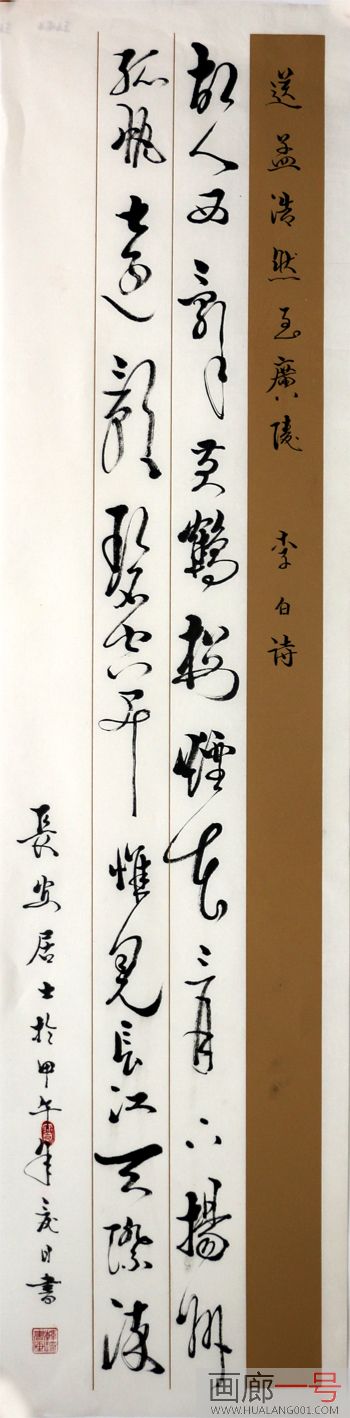 送孟浩然至廣陵 李白詩
故人西辭黄鶴楼煙花三月下揚州
孤帆遠影碧空尽惟見長江天際流
長安居士於甲午年夏日書
画廊一号
WWW.HUALANG001.COM